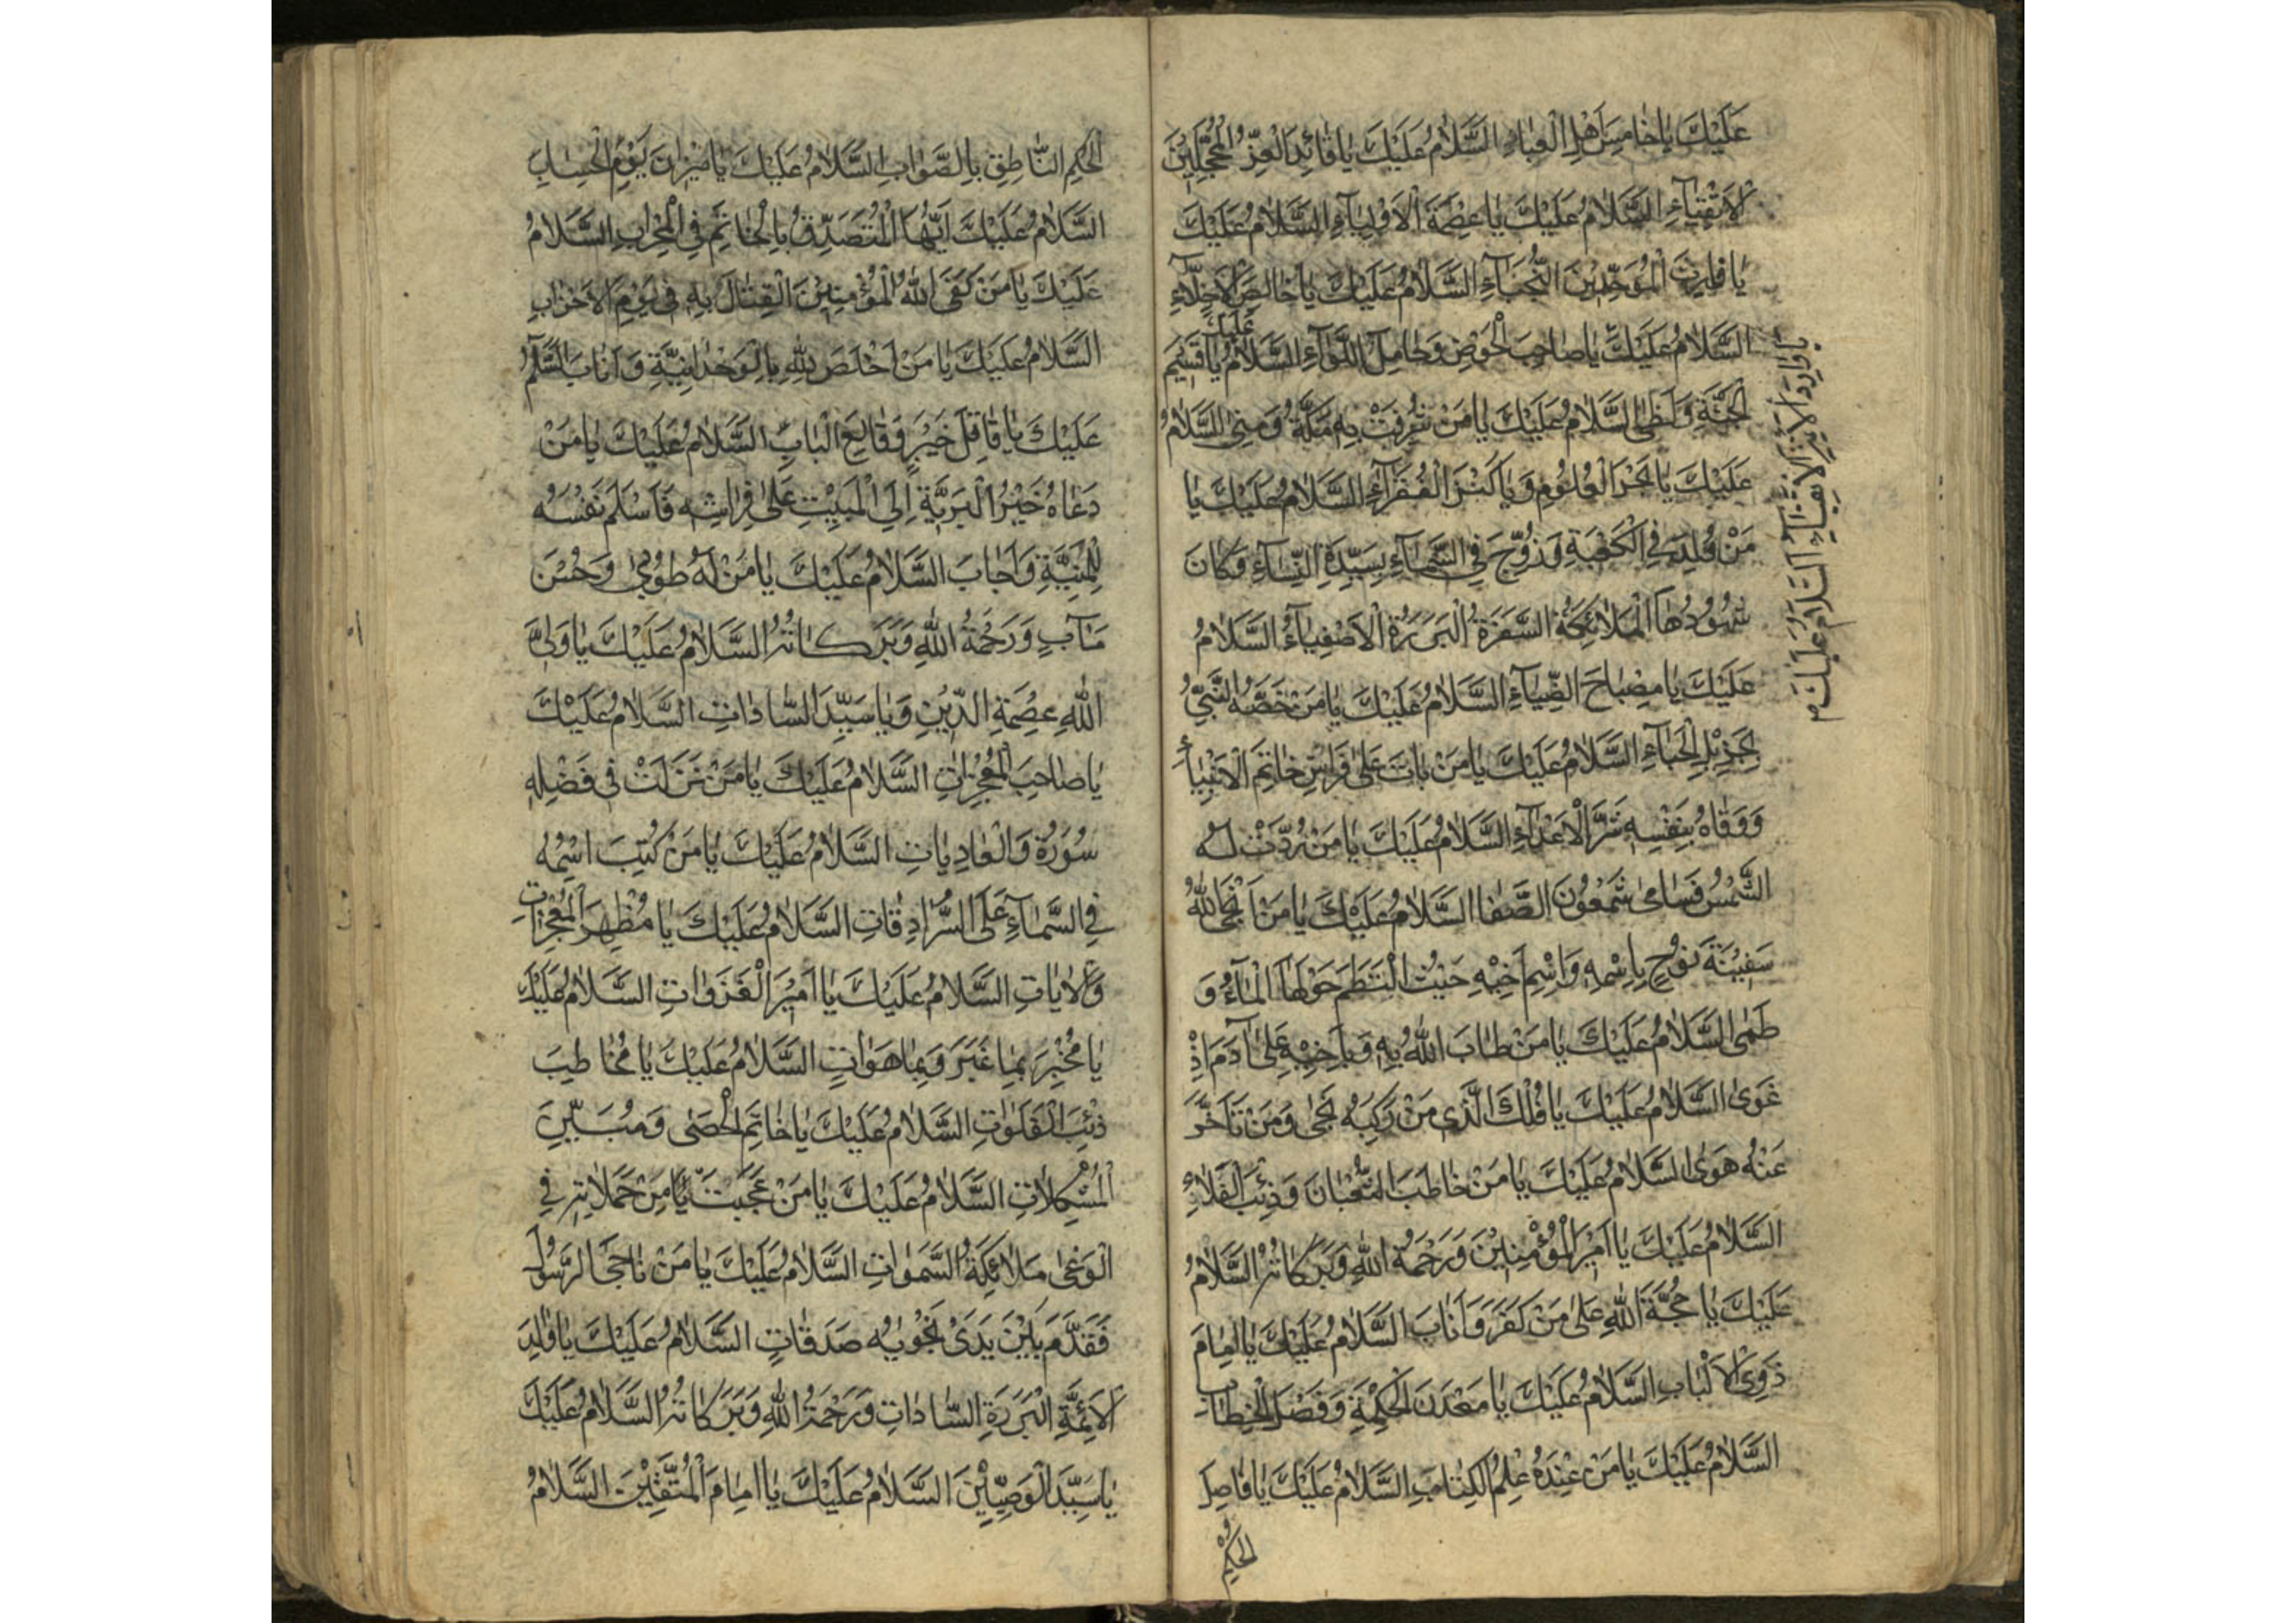 عَلَيْكَ يٰا خٰامِسَ اَهْلِ الْعَبٰاءِ السَّلٰامُ عَلَيْكَ يٰا قٰائِدَ الْغُرِّ الْمُحَجَّلِيْنَ
الْاَتْقِيٰآءِ السَّلٰامُ عَلَيْكَ يٰا عِصْمَةَ الْاَوْلِيٰآءِ السَّلٰامُ عَلَيْكَ
يٰا الْمُوَحِّدِيْنَ النُّجَبٰآءِ السَّلٰامُ عَلَيْكَ يٰا خٰالِصَ الْاَخِلّٰآءِ
السَّلٰامُ عَلَيْكَ يٰا صٰاحِبَ الْحَوْضِ وَحٰامِلَ اللِّوٰآءِ السَّلٰامُ عَلَيْكَ يٰا قَسِيْمَ
الْجَنَّةِ وَلَظٰى السَّلٰامُ عَلَيْكَ يٰا مَنْ شُرِّفَتْ بِهِ مَكَّةُ وَمِنٰى السَّلٰامُ
عَلَيْكَ يٰا بَحْرَ الْعُلُوْمِ وَيٰا كَنْزَ الْفُقَرٰآءِ السَّلٰامُ عَلَيْكَ يٰا
مَنْ وُلِدَ فِي الْكَعْبَةِ وَزُوِّجَ فِي السَّمٰآءِ بِسَيِّدَةِ النِّسٰآءِ وَكٰانَ
شُهُوْدُهٰا الْمَلٰائِكَةُ السَّفَرَةُ الْبَرَرَةُ الْاَصْفِيٰآءُ السَّلٰامُ
عَلَيْكَ يٰا مِصْبٰاحَ الضِّيٰآءِ السَّلٰامُ عَلَيْكَ يٰا مَنْ خَصَّهُ النَّبِيُّ
بِجَزِيْلِ الْحِبٰآءِ السَّلٰامُ عَلَيْكَ يٰا مَنْ بٰاتَ عَلٰى فِرٰاشِ خٰاتِمِ الْاَنْبِيٰآءِ
وَوَقٰاهُ بِنَفْسِهِ شَرَّ الْاَعْدٰآءِ السَّلٰامُ عَلَيْكَ يٰا مَنْ رُدَّتْ لَهُ
الشَّمْسُ فَسٰامٰى شَمْعُوْنَ الصَّفٰا السَّلٰامُ عَلَيْكَ يٰا مَنْ اَنْجَى اللّٰهُ
سَفِيْنَةَ نُوْحٍ بِاِسْمِهِ وَاسْمِ اَخِيْهِ حَيْثُ الْتَطَمَ حَوْلَهٰا الْمٰآءُ وَ
طَمٰى السَّلٰامُ عَلَيْكَ يٰا مَنْ طٰابَ اللّٰهُ بِهِ وَبِاَخِيْهِ عَلٰى آدَمَ اِذْ
غَوٰى السَّلٰامُ عَلَيْكَ يٰا فُلْكَ الَّذِي مَنْ رَكِبَهُ نَجٰى وَمَنْ تَاَخَّرَ
عَنْهُ هَوٰى السَّلٰامُ عَلَيْكَ يٰا مَنْ خٰاطَبَ الثُّعْبٰانَ وَذِئْبَ الْفَلٰاءِ
السَّلٰامُ عَلَيْكَ يٰا اَمِيْرَ الْمُؤْمِنِيْنَ وَرَحْمَةُ اللّٰهِ وَبَرَكٰاتُهُ السَّلٰامُ
عَلَيْكَ يٰا حُجَّةَ اللّٰهِ عَلٰى مَنْ كَفَرَ وَاَنٰابَ السَّلٰامُ عَلَيْكَ يٰا اِمٰامَ
ذَوِي الْاَلْبٰابِ السَّلٰامُ عَلَيْكَ يٰا مَعْدَنَ الْحِكْمَةِ وَفَصْلَ الْخِطٰابِ
السَّلٰامُ عَلَيْكَ يٰا مَنْ عِنْدَهُ عِلْمُ الْكِتٰابِ السَّلٰامُ عَلَيْكَ يٰا فٰاصِلَ
الْحُكْمِ
الْاَتْقِيٰآءِ السَّلٰامُ عَلَيْكَ
الْحُكْمِ النّٰاطِقِ بِالصَّوٰابِ السَّلٰامُ عَلَيْكَ يٰا مِيْزٰانَ يَوْمِ الْحِسٰابِ
السَّلٰامُ عَلَيْكَ اَيُّهَا الْمُتَصَدِّقُ بِالْخٰاتَمِ فِي الْمِحْرٰابِ السَّلٰامُ
عَلَيْكَ يٰا مَنْ كَفَى اللّٰهُ الْمُؤْمِنِيْنَ الْقِتٰالَ بِهِ فِي يَوْمِ الْاَحْزٰابِ
السَّلٰامُ عَلَيْكَ يٰا مَنْ اَخْلَصَ لِلّٰهِ بِالْوَحْدٰانِيَّةِ وَاَنٰابَ السَّلٰامُ
عَلَيْكَ يٰا قٰاتِلَ خَيْبَرٍ وَقٰالِعَ الْبٰابِ السَّلٰامُ عَلَيْكَ يٰا مَنْ
دَعٰاهُ خَيْرُ الْبَرِيَّةِ اِلَى الْمَبِيْتِ عَلٰى فِرٰاشِهِ فَاَسْلَمَ نَفْسَهُ
لِلْمَنِيَّةِ وَاَجٰابَ السَّلٰامُ عَلَيْكَ يٰا مَنْ لَهُ طُوْبٰى وَحُسْنَ
مَآبٍ وَرَحْمَةُ اللّٰهِ وَبَرَكٰاتُهُ السَّلٰامُ عَلَيْكَ يٰا وَلِيَّ
اللّٰهِ عِصْمَةِ الدِّيْنِ وَيٰا سَيِّدَ السّٰادٰاتِ السَّلٰامُ عَلَيْكَ
يٰا صٰاحِبَ الْمُعْجِزٰاتِ السَّلٰامُ عَلَيْكَ يٰا مَنْ نَزَلَتْ فِي فَضْلِهِ
سُوْرَةُ وَالْعٰادِيٰاتِ السَّلٰامُ عَلَيْكَ يٰا مَنْ كُتِبَ اسْمُهُ
فِي السَّمٰآءِ عَلَى السُّرٰادِقٰاتِ السَّلٰامُ عَلَيْكَ يٰا مُظْهِرَ الْمُعْجِزٰاتِ
وَالْاٰيٰاتِ السَّلٰامُ عَلَيْكَ يٰا اَمِيْرَ الْغَزَوٰاتِ السَّلٰامُ عَلَيْكَ
يٰا مُخْبِرَ بِمٰا غَبَرَ وَبِمٰا هُوَ اٰتٍ السَّلٰامُ عَلَيْكَ يٰا مُخٰاطِبَ
ذِئْبِ الْفَلَوٰاتِ السَّلٰامُ عَلَيْكَ يٰا خٰاتِمَ الْحَصٰى وَمُبَيِّنَ
الْمُشْكِلٰاتِ السَّلٰامُ عَلَيْكَ يٰا مَنْ عَجِبَتْ مِنْ حَمَلٰاتِهِ فِي
الْوَغٰى مَلٰائِكَةُ السَّمٰوٰاتِ السَّلٰامُ عَلَيْكَ يٰا مَنْ نٰاجَى الرَّسُوْلَ
فَقَدَّمَ بَيْنَ يَدَيْ نَجْوٰيهُ صَدَقٰاتٍ السَّلٰامُ عَلَيْكَ يٰا وٰالِدَ
الْاَئِمَّةِ الْبَرَرَةِ السّٰادٰاتِ وَرَحْمَةُ اللّٰهِ وَبَرَكٰاتُهُ السَّلٰامُ عَلَيْكَ
يٰا سَيِّدَ الْوَصِيِّيْنَ السَّلٰامُ عَلَيْكَ يٰا اِمٰامَ الْمُتَّقِيْنَ السَّلٰامُ